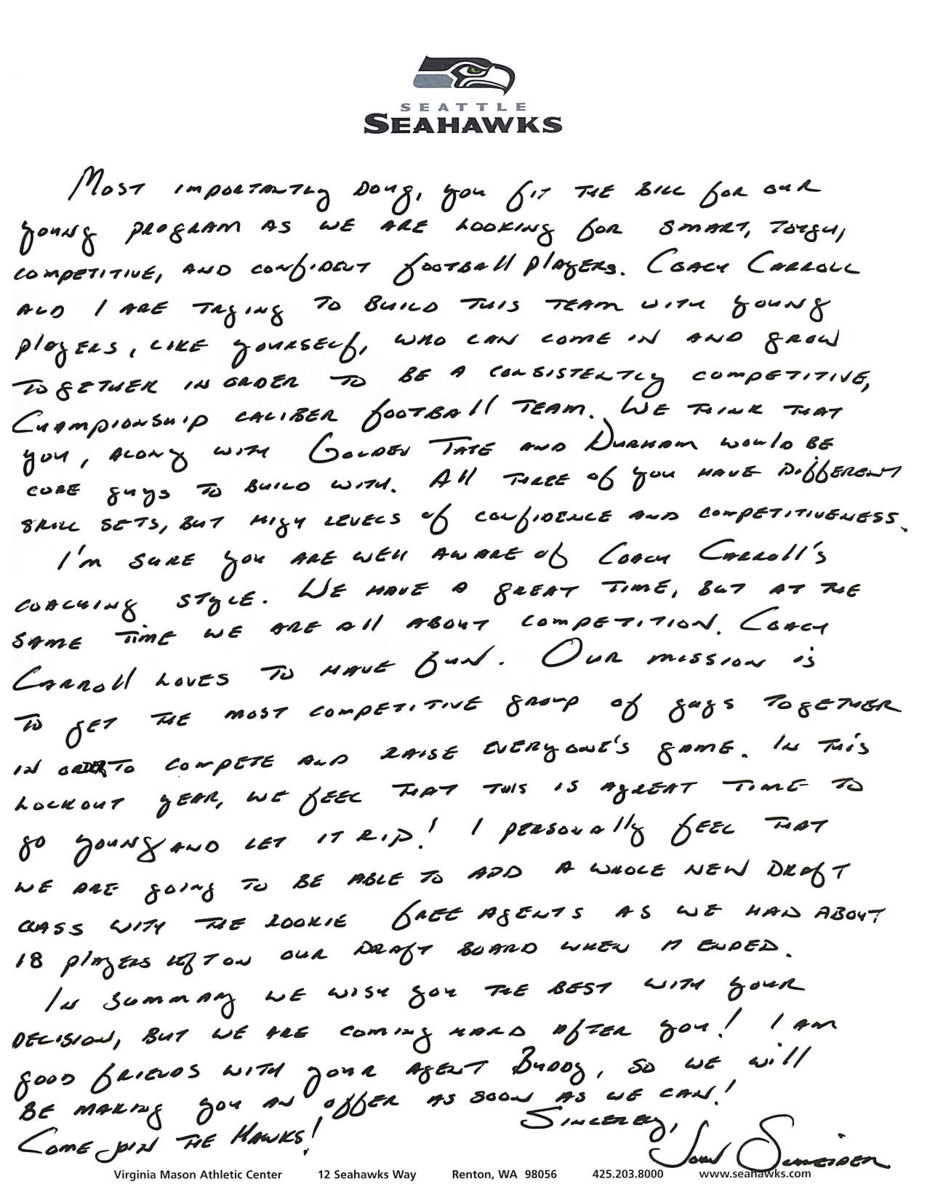 SEATTLE
SEAHAWKS
Most importantly Doug, you fit the bill for our
young program as we are looking for smart, tough,
competitive, and confident football players. Coach Carroll
and I are trying to build this team with young
players, like yourself, who can come in and grow
together in order to be a consistently competitive,
Championship caliber football team. We think that
you, along with Golden Tate and Durham would be
core guys to build with. All three of you have different
skill sets, but high levels of confidence and competitiveness.
I'm sure you are well aware of Coach Carroll's
coaching style. We have a great time, but at the
same time we are all about competition. Coach
Carroll loves to have fun. Our mission is
to get the most competitive group of guys together
in order to compete and raise everyone's game. In this
lockout year, we feel that this is a great time to
go young and let it rip! I personally feel that
we are going to be able to add a whole new draft
class with the rookie free agents as we had about
18 players left on our draft board when it ended.
In summary we wish you the best with your
decision, but we are coming hard after you! I am
good friends with your agent Buddy, so we will
be making you an offer as soon as we can!
Come join the Hawks! Sincerely,
John Schneider
Virginia Mason Athletic Center 12 Seahawks Way Renton, WA 98056 425.203.8000 www.seahawks.com